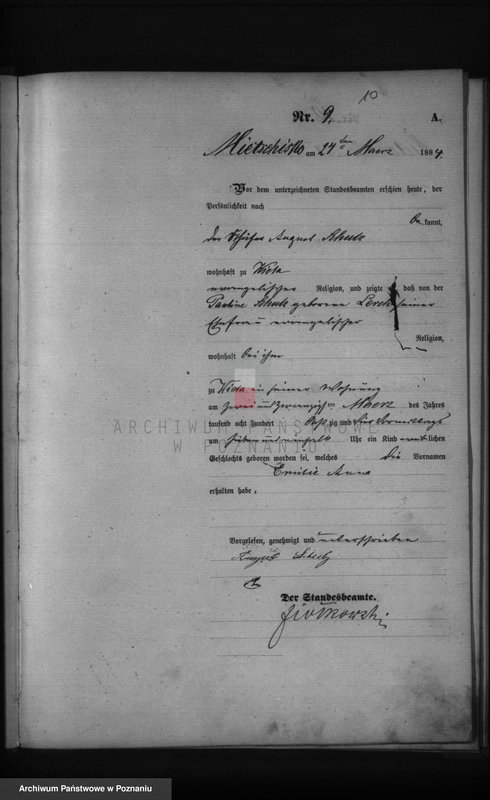 10
Nr. 9. A.
Mietschisko am 24ten Maerz 1884.
Vor dem unterzeichneten Standesbeamten erschien heute, der
Persönlichkeit nach
be kannt,
der Schäfer August Schulz
wohnhaft zu
evangelischer Religion, und zeigte an, daß von der
Pauline Schulz geborene seiner
Ehefrau evangelischer
Religion,
wohnhaft bei ihm
zu in seiner Wohnung
am zwei und zwanzigsten Maerz des Jahres
tausend acht hundert achtzig und vier Vormittags
um sieben und einhalb Uhr ein Kind weiblichen
Geschlechts geboren worden sei, welches die Vornamen
Emilie Anna
erhalten habe.
Vorgelesen, genehmigt und unterschrieben
August
Der Standesbeamte.
ARCHIWUM PAŃSTWOWE
W POZNANIU
Archiwum Państwowe w Poznaniu